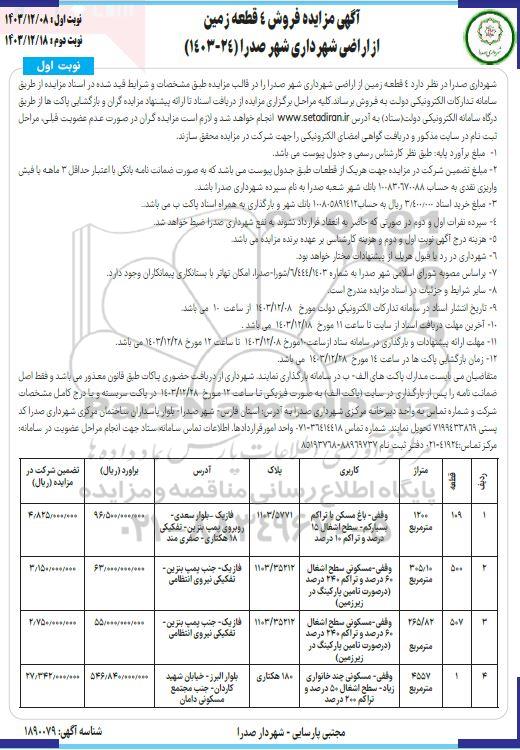 آگهی مزایده فروش ۴ قطعه زمین
از اراضی شهرداری شهر صدرا (۲۴-۱۴۰۳)
نوبت اول : ۱۴۰۳/۱۲/۰۸
نوبت دوم : ۱۴۰۳/۱۲/۱۸
نوبت اول
شهرداری صدرا
شهرداری صدرا در نظر دارد ۴ قطعه زمین از اراضی شهرداری شهر صدرا را در قالب مزایده طبق مشخصات و شرایط قید شده در اسناد مزایده از طریق
سامانه تدارکات الکترونیکی دولت به فروش برساند.کلیه مراحل برگزاری مزایده از دریافت اسناد تا ارائه پیشنهاد مزایده گران و بازگشایی پاکت ها از طریق
درگاه سامانه الکترونیکی دولت(ستاد) به آدرس www.setadiran.ir انجام خواهد شد و لازم است مزایده گران در صورت عدم عضویت قبلی، مراحل
ثبت نام در سایت مذکور و دریافت گواهی امضای الکترونیکی را جهت شرکت در مزایده محقق سازند.
۱- مبلغ برآورد پایه: طبق نظر کارشناس رسمی و جدول پیوست می باشد.
۲- مبلغ تضمین شرکت در مزایده جهت هریک از قطعات طبق جدول پیوست می باشد که به صورت ضمانت نامه بانکی با اعتبار حداقل ۳ ماهه یا فیش
واریزی نقدی به حساب ۱۰۰۸۳۰۶۷۰۰۸۸ بانک شهر شعبه صدرا به نام سپرده شهرداری صدرا باشد.
۳- مبلغ خرید اسناد ۳/۴۰۰/۰۰۰ ریال به حساب ۱۰۰۸۰۵۸۹۱۴۱۲ بانک شهر و بارگذاری به همراه اسناد پاکت ب می باشد.
۴- سپرده نفرات اول و دوم در صورتی که حاضر به انعقاد قرارداد نشوند به نفع شهرداری صدرا ضبط خواهد شد.
۵- هزینه درج آگهی نوبت اول و دوم و هزینه کارشناسی بر عهده برنده مزایده می باشد.
۶- شهرداری در رد یا قبول هریک از پیشنهادات مختار خواهد بود.
۷- براساس مصوبه شورای اسلامی شهر صدرا به شماره ۶/۴۴۴/۱۴۰۳/شورا-صدرا، امکان تهاتر با بستانکاری پیمانکاران وجود دارد.
۸- سایر شرایط و جزئیات در اسناد مزایده مندرج است.
۹- تاریخ انتشار اسناد در سامانه تدارکات الکترونیکی دولت مورخ ۱۴۰۳/۱۲/۰۸ از ساعت ۱۰ می باشد.
۱۰- آخرین مهلت دریافت اسناد از سایت تا ساعت ۱۱ مورخ ۱۴۰۳/۱۲/۱۸ می باشد .
۱۱- مهلت ارائه پیشنهادات و بارگذاری در سامانه ستاد ازساعت۱۰مورخ ۱۴۰۳/۱۲/۰۸ تا ساعت ۱۲ مورخ ۱۴۰۳/۱۲/۲۸ می باشد.
۱۲- زمان بازگشایی پاکت ها در ساعت ۱۴ مورخ ۱۴۰۳/۱۲/۲۸ می باشد.
متقاضیان می بایست مدارک پاکت های الف- ب در سامانه بارگذاری نمایند. شهرداری از دریافت حضوری پاکات طبق قانون معذور می باشد و فقط اصل
ضمانت نامه را پس از بارگذاری در سایت (پاکت الف) به صورت فیزیکی تا ساعت ۱۲ مورخ ۱۴۰۳/۱۲/۲۸ در پاکت سربسته و با درج کامل مشخصات
شرکت و شماره تماس به واحد دبیرخانه مرکزی شهرداری صدرا به آدرس: استان فارس- شهر صدرا- بلوار پاسداران ساختمان مرکزی شهرداری صدرا کد
پستی ۷۱۹۹۴۳۳۸۶۹ تحویل نمایند. شماره تماس ۳۶۴۱۴۴۱۸-۰۷۱ واحد امورقراردادها. اطلاعات تماس سامانه ستاد جهت انجام مراحل عضویت در سامانه:
مرکز تماس: ۴۱۹۲۴-۰۲۱ دفتر ثبت نام ۸۸۹۶۹۷۳۷-۸۵۱۹۳۷۶۸
ردیف قطعه متراژ کاربری پلاک آدرس براورد (ریال) تضمین شرکت در مزایده (ریال)
۱ ۱۰۹ ۱۲۰۰ مترمربع وقفی- باغ مسکن با تراکم بسیارکم- سطح اشغال ۱۵ درصد و تراکم ۱۰ درصد ۱۱۰۳/۵۷۷۱ فازیک -بلوار سعدی- روبروی پمپ بنزین- تفکیکی ۱۸ هکتاری- صفری مند ۹۶/۵۰۰/۰۰۰/۰۰۰ ۴/۸۲۵/۰۰۰/۰۰۰
۲ ۵۰۰ ۳۰۵/۱۰ مترمربع وقفی-مسکونی سطح اشغال ۶۰ درصد و تراکم ۲۴۰ درصد (درصورت تامین پارکینگ در زیرزمین) ۱۱۰۳/۳۵۲۱۲ فازیک- جنب پمپ بنزین- تفکیکی نیروی انتظامی ۶۳/۰۰۰/۰۰۰/۰۰۰ ۳/۱۵۰/۰۰۰/۰۰۰
۳ ۵۰۷ ۲۶۵/۸۲ مترمربع وقفی-مسکونی سطح اشغال ۶۰ درصد و تراکم ۲۴۰ درصد (درصورت تامین پارکینگ در زیرزمین) ۱۱۰۳/۳۵۲۱۲ فازیک- جنب پمپ بنزین- تفکیکی نیروی انتظامی ۵۵/۰۰۰/۰۰۰/۰۰۰ ۲/۷۵۰/۰۰۰/۰۰۰
۴ ۱ ۴۵۵۷ مترمربع وقفی- مسکونی چند خانواری زیاد- سطح اشغال ۵۰ درصد و تراکم ۲۰۰ درصد ۱۸۰ هکتاری بلوار البرز- خیابان شهید کاردان- جنب مجتمع مسکونی دامان ۵۴۶/۸۴۰/۰۰۰/۰۰۰ ۲۷/۳۴۲/۰۰۰/۰۰۰
مجتبی پارسایی - شهردار صدرا
شناسه آگهی: ۱۸۹۰۰۷۹
پایگاه اطلاع رسانی مناقصه و مزایده